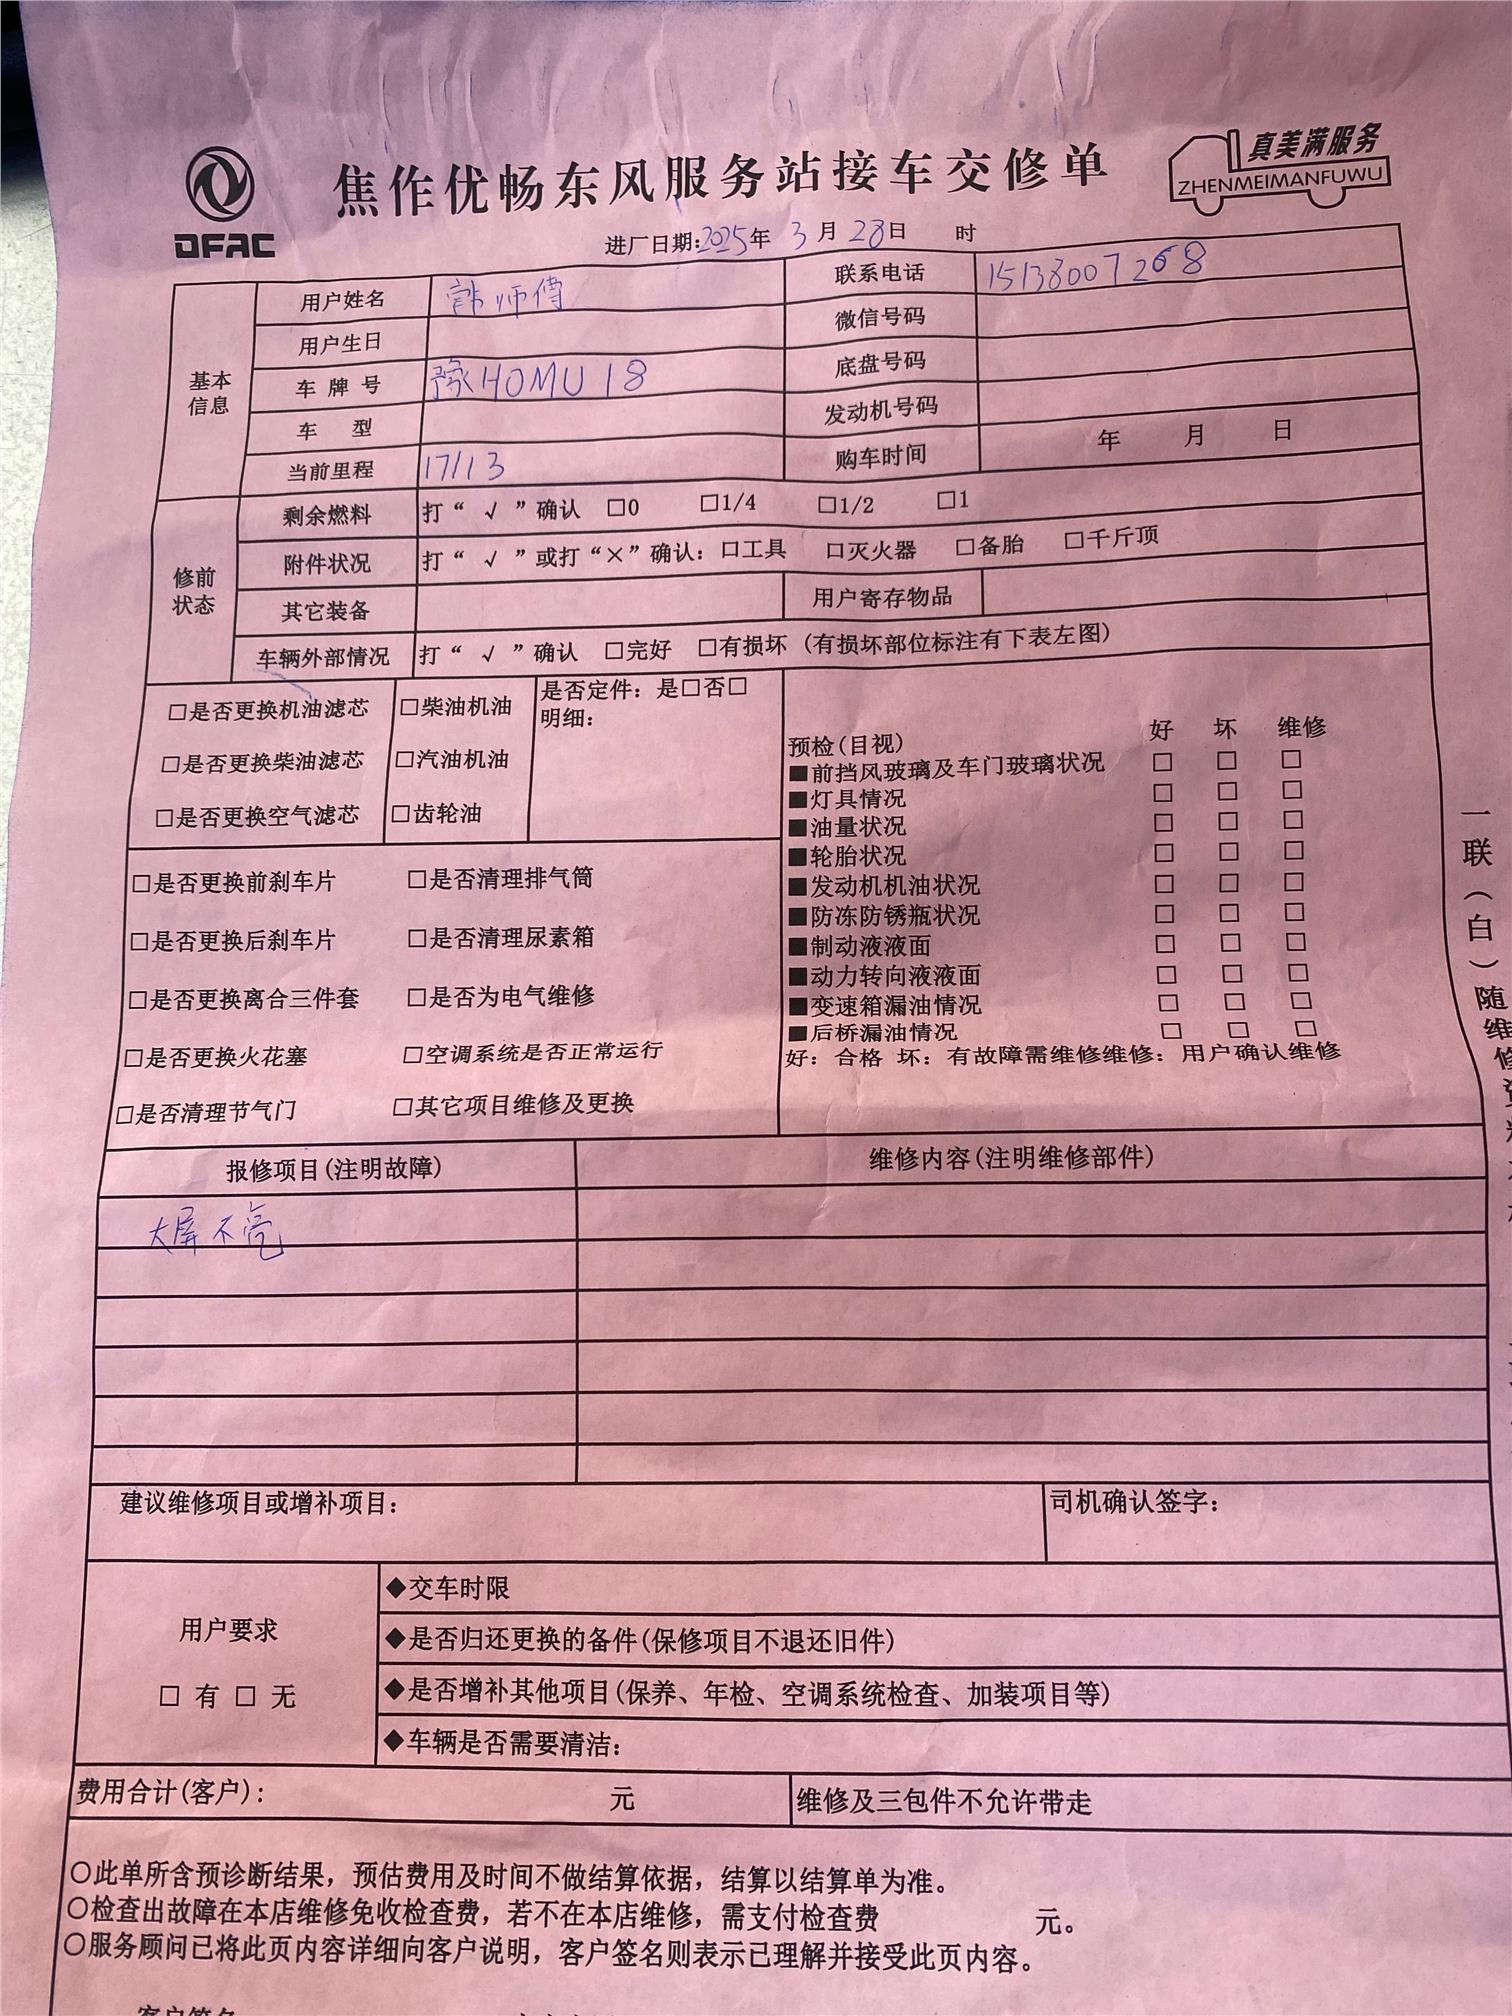 DFAC
焦作优畅东风服务站接车交修单
真美满服务
ZHENMEIMANFUWU
进厂日期:2025年 3月 28日 时
基本信息
用户姓名 韩师傅 联系电话 15138007268
用户生日 微信号码
车牌号 豫H0MU18 底盘号码
车 型 发动机号码
当前里程 17113 购车时间 年 月 日
修前状态
剩余燃料 打“√”确认 □0 □1/4 □1/2 □1
附件状况 打“√”或打“×”确认: □工具 □灭火器 □备胎 □千斤顶
其它装备 用户寄存物品
车辆外部情况 打“√”确认 □完好 □有损坏 (有损坏部位标注有下表左图)
□是否更换机油滤芯 □柴油机油
□是否更换柴油滤芯 □汽油机油
□是否更换空气滤芯 □齿轮油
是否定件: 是□否□
明细:
□是否更换前刹车片 □是否清理排气筒
□是否更换后刹车片 □是否清理尿素箱
□是否更换离合三件套 □是否为电气维修
□是否更换火花塞 □空调系统是否正常运行
□是否清理节气门 □其它项目维修及更换
预检(目视) 好 坏 维修
■前挡风玻璃及车门玻璃状况 □ □ □
■灯具情况 □ □ □
■油量状况 □ □ □
■轮胎状况 □ □ □
■发动机机油状况 □ □ □
■防冻防锈瓶状况 □ □ □
■制动液液面 □ □ □
■动力转向液液面 □ □ □
■变速箱漏油情况 □ □ □
■后桥漏油情况 □ □ □
好: 合格 坏: 有故障需维修维修: 用户确认维修
报修项目(注明故障) 维修内容(注明维修部件)
大屏不亮
建议维修项目或增补项目: 司机确认签字:
用户要求
□ 有 □ 无
◆交车时限
◆是否归还更换的备件(保修项目不退还旧件)
◆是否增补其他项目(保养、年检、空调系统检查、加装项目等)
◆车辆是否需要清洁:
费用合计(客户): 元 维修及三包件不允许带走
○此单所含预诊断结果，预估费用及时间不做结算依据，结算以结算单为准。
○检查出故障在本店维修免收检查费，若不在本店维修，需支付检查费 元。
○服务顾问已将此页内容详细向客户说明，客户签名则表示已理解并接受此页内容。
客户签名
一联(白)随维修